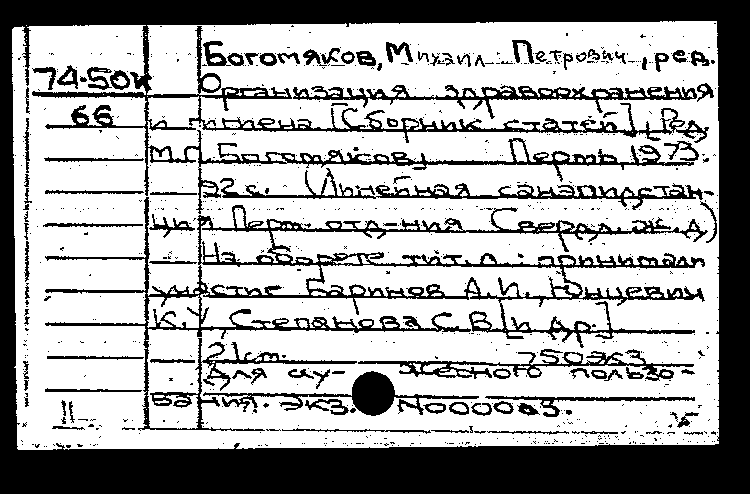 Богомяков, Михаил Петрович, ред.
74-50к
Организация здравоохранения
66
и гигиена [Сборник статей]. Ред.
М.П. Богомяков. Пермь, 1973.
92 с. (Линейная санэпидстан-
ция Перм. отд-ния Свердл. ж.д)
На обороте тит. л.: принимали
участие Баринов А.И., Юнцевич
К.У, Степанова С.В [и др.]
21 см. 750 экз
Для слу- жебного пользо-
вания. Экз. N000003.
11